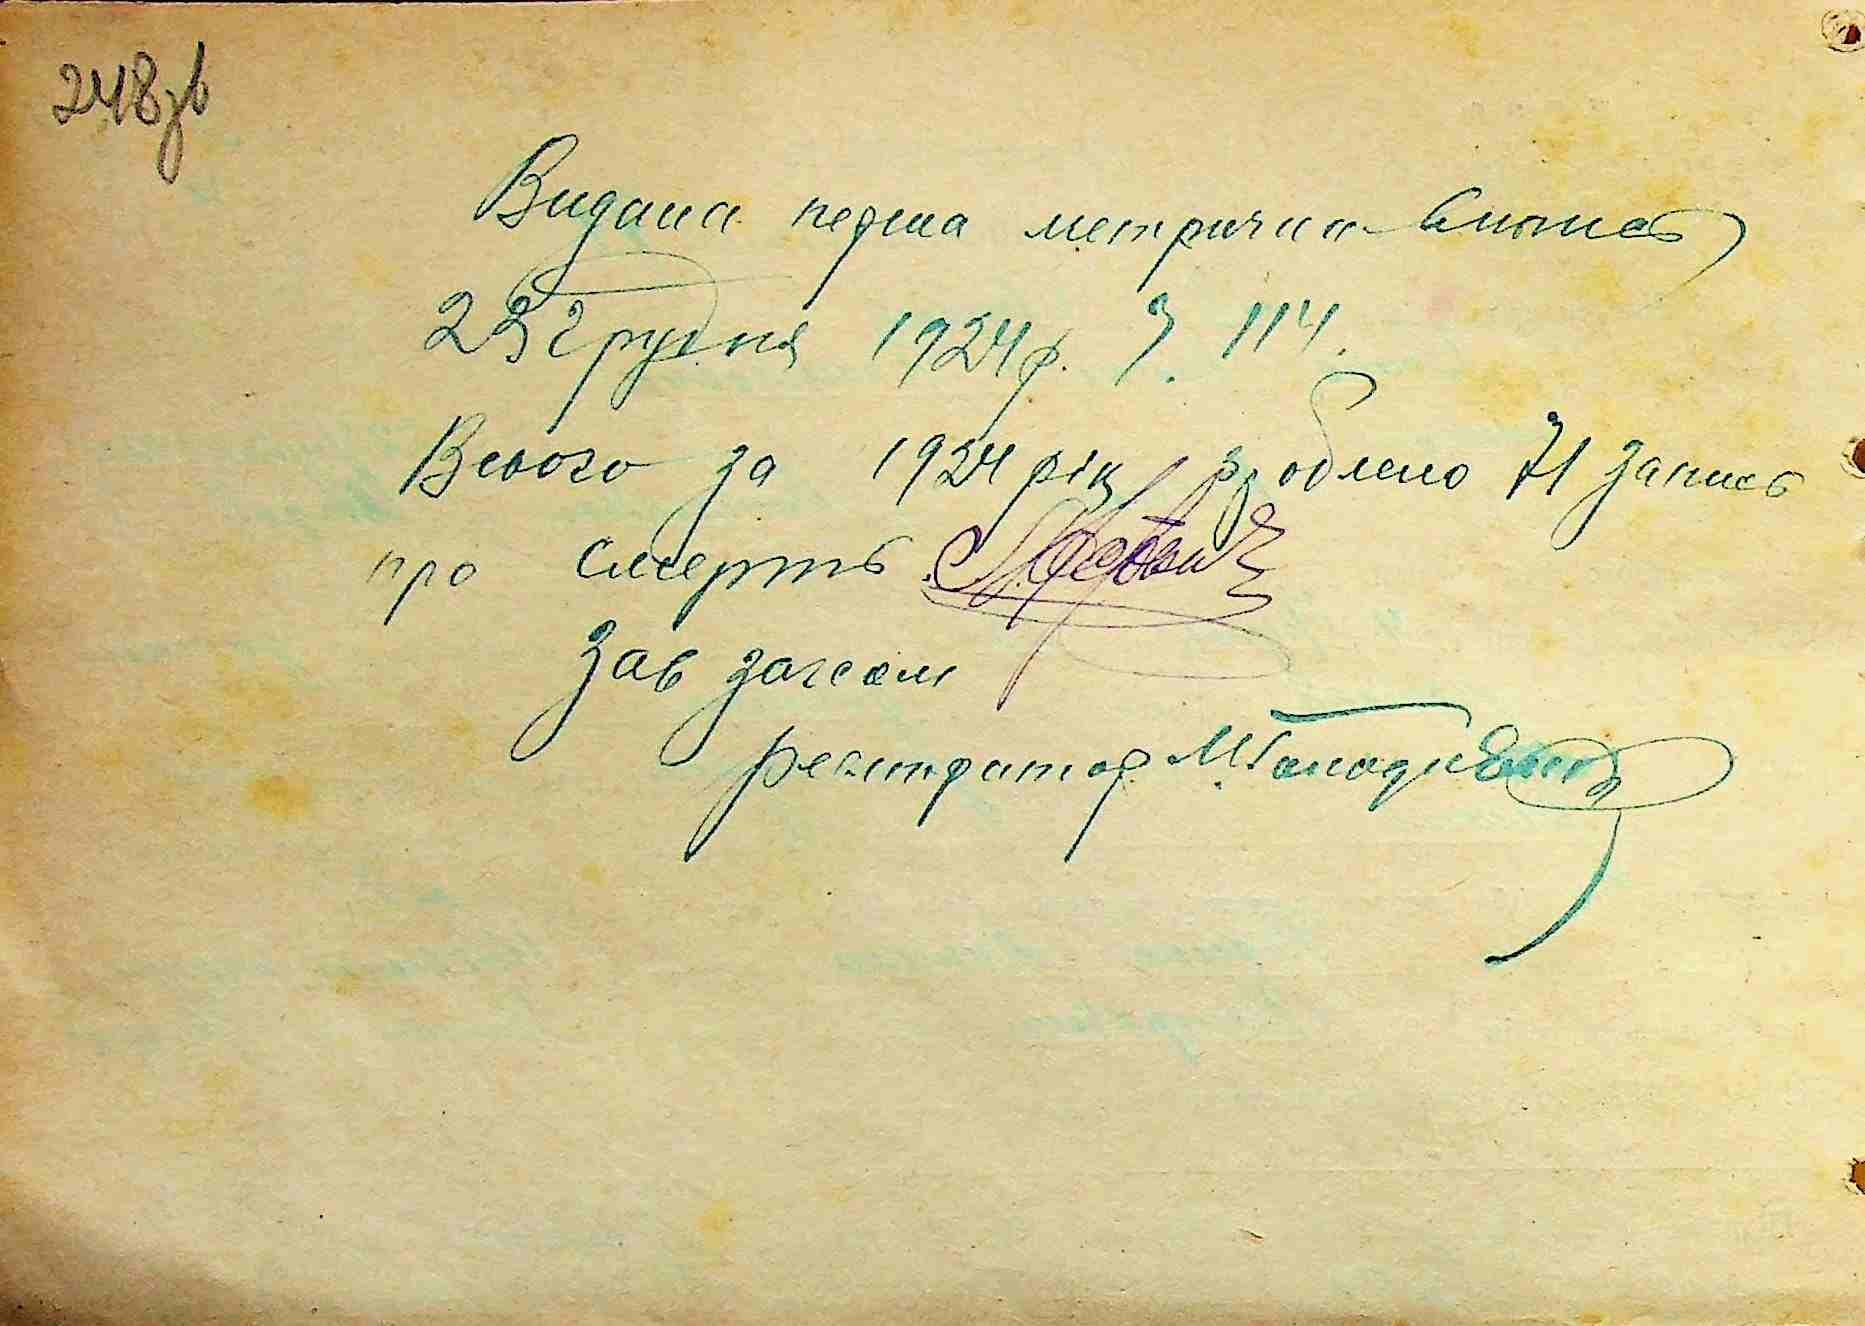 248зв
Видана перша метрична випись
23 грудня 1924 р. з. 114.
Всього за 1924 рік зроблено 71 запись
про смерть
Зав загсом
Регистратор М.